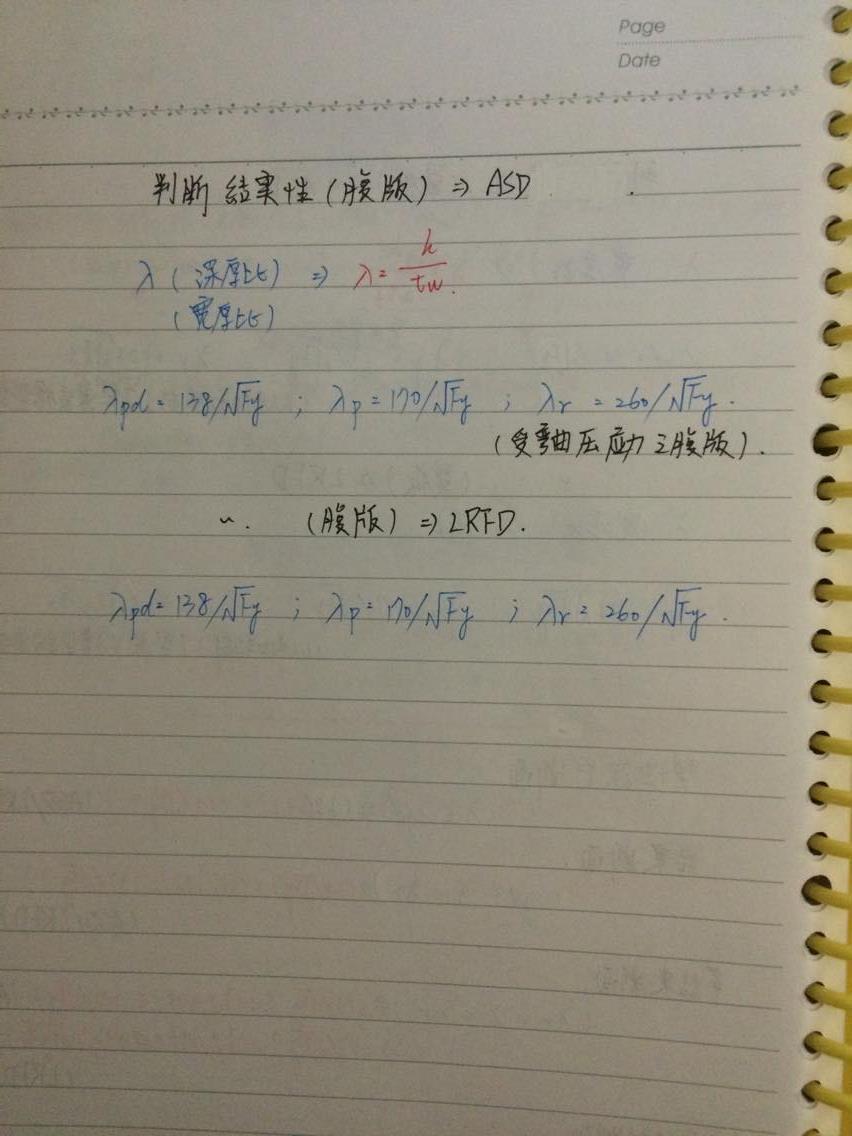 Page
Date
判断 結実性(腹版) ⇒ ASD
λ (深厚比) ⇒ λ = h/tw.
(寬厚比)
λpd = 138/√Fy ; λp = 170/√Fy ; λr = 260/√Fy .
(受彎曲压应力之腹版).
(腹版) ⇒ LRFD.
λpd = 138/√Fy ; λp = 170/√Fy ; λr = 260/√Fy .